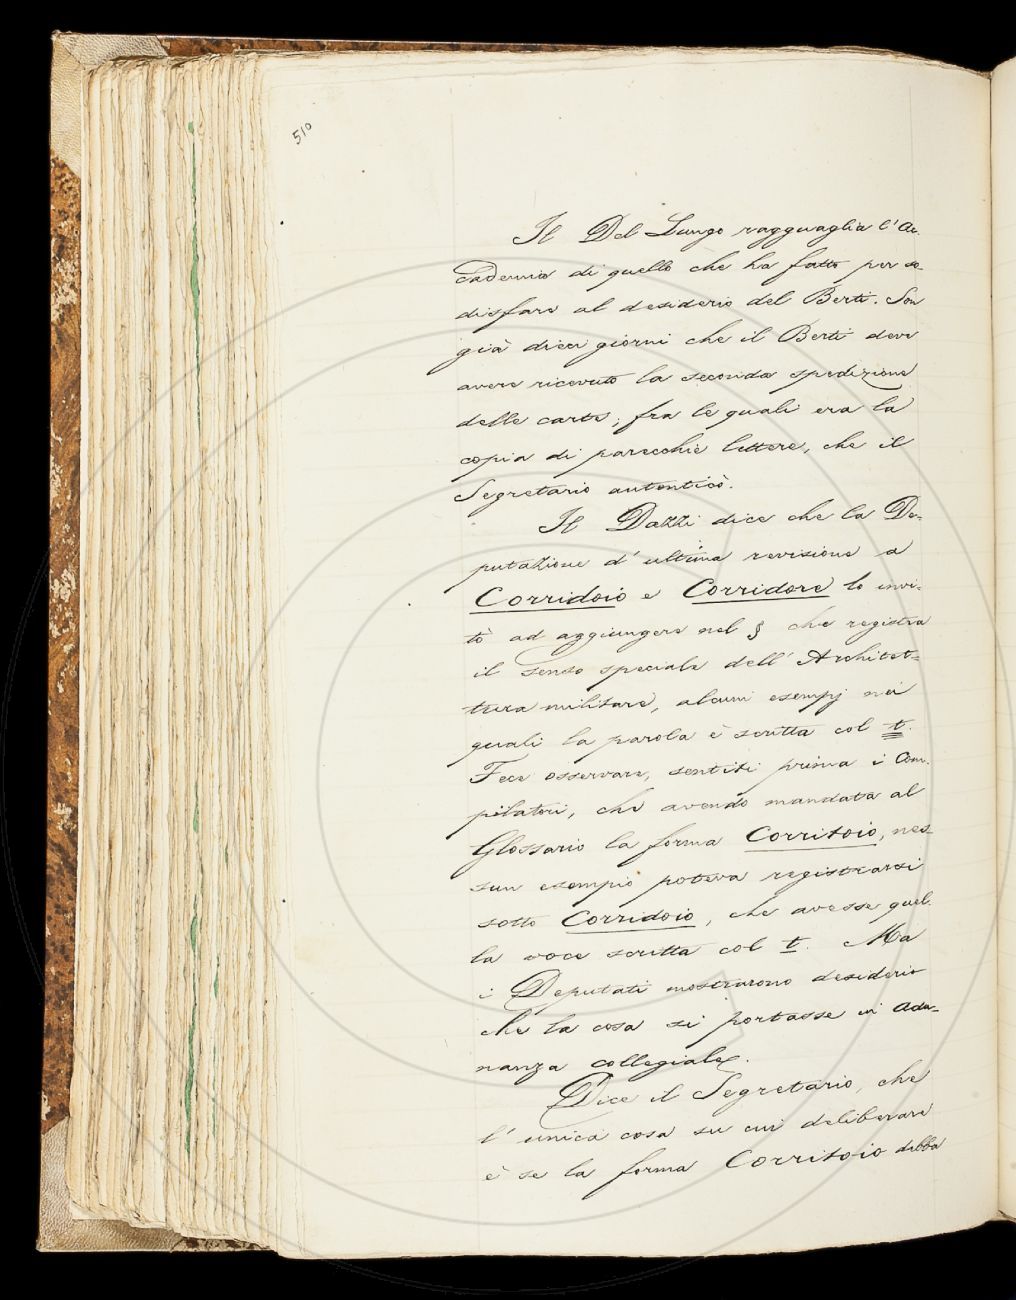 510
Il Del Lungo ragguaglia l'Ac-
cademia di quello che ha fatto per so-
disfare al desiderio del Berti. Son
già dieci giorni che il Berti deve
avere ricevuto la seconda spedizione
delle carte, fra le quali era la
copia di parecchie lettere, che il
Segretario autenticò.
Il Dazzi dice che la De-
putazione d'ultima revisione a
Corridoio e Corridore lo invi-
tò ad aggiungere nel § che registra
il senso speciale dell'Architet-
tura militare, alcuni esempj nei
quali la parola è scritta col t.
Fece osservare, sentiti prima i Com-
pilatori, che avendo mandata al
Glossario la forma Corritoio, nes-
sun esempio poteva registrarsi
sotto Corridoio, che avesse quel-
la voce scritta col t. Ma
i Deputati mostrarono desiderio
che la cosa si portasse in adu-
nanza collegiale.
Dice il Segretario, che
l'unica cosa su cui deliberare
è se la forma Corritoio debba